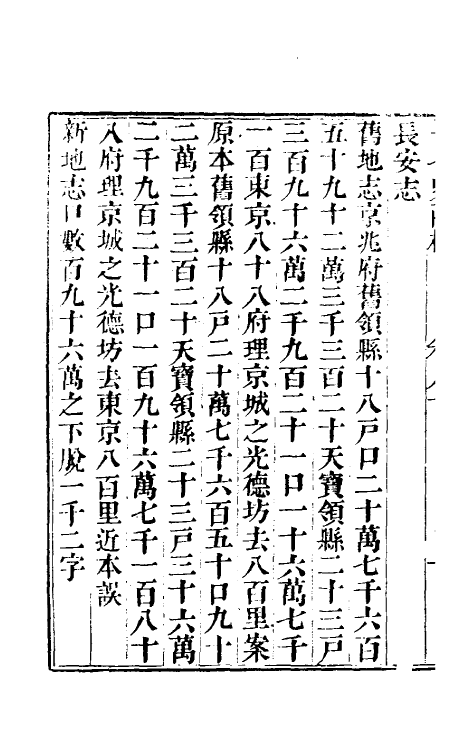 長安志
舊地志京兆府舊領縣十八戸口二十萬七千六百
五十九十二萬三千三百二十天寶領縣二十三戸
三百九十六萬二千九百二十一口一十六萬七千
一百東京八十八府理京城之光德坊去八百里案
原本舊領縣十八戸二十萬七千六百五十口九十
二萬三千三百二十天寶領縣二十三戸三十六萬
二千九百二十一口一百九十六萬七千一百八十
八府理京城之光德坊去東京八百里近本誤
新地志口數百九十六萬之下脫一千二字